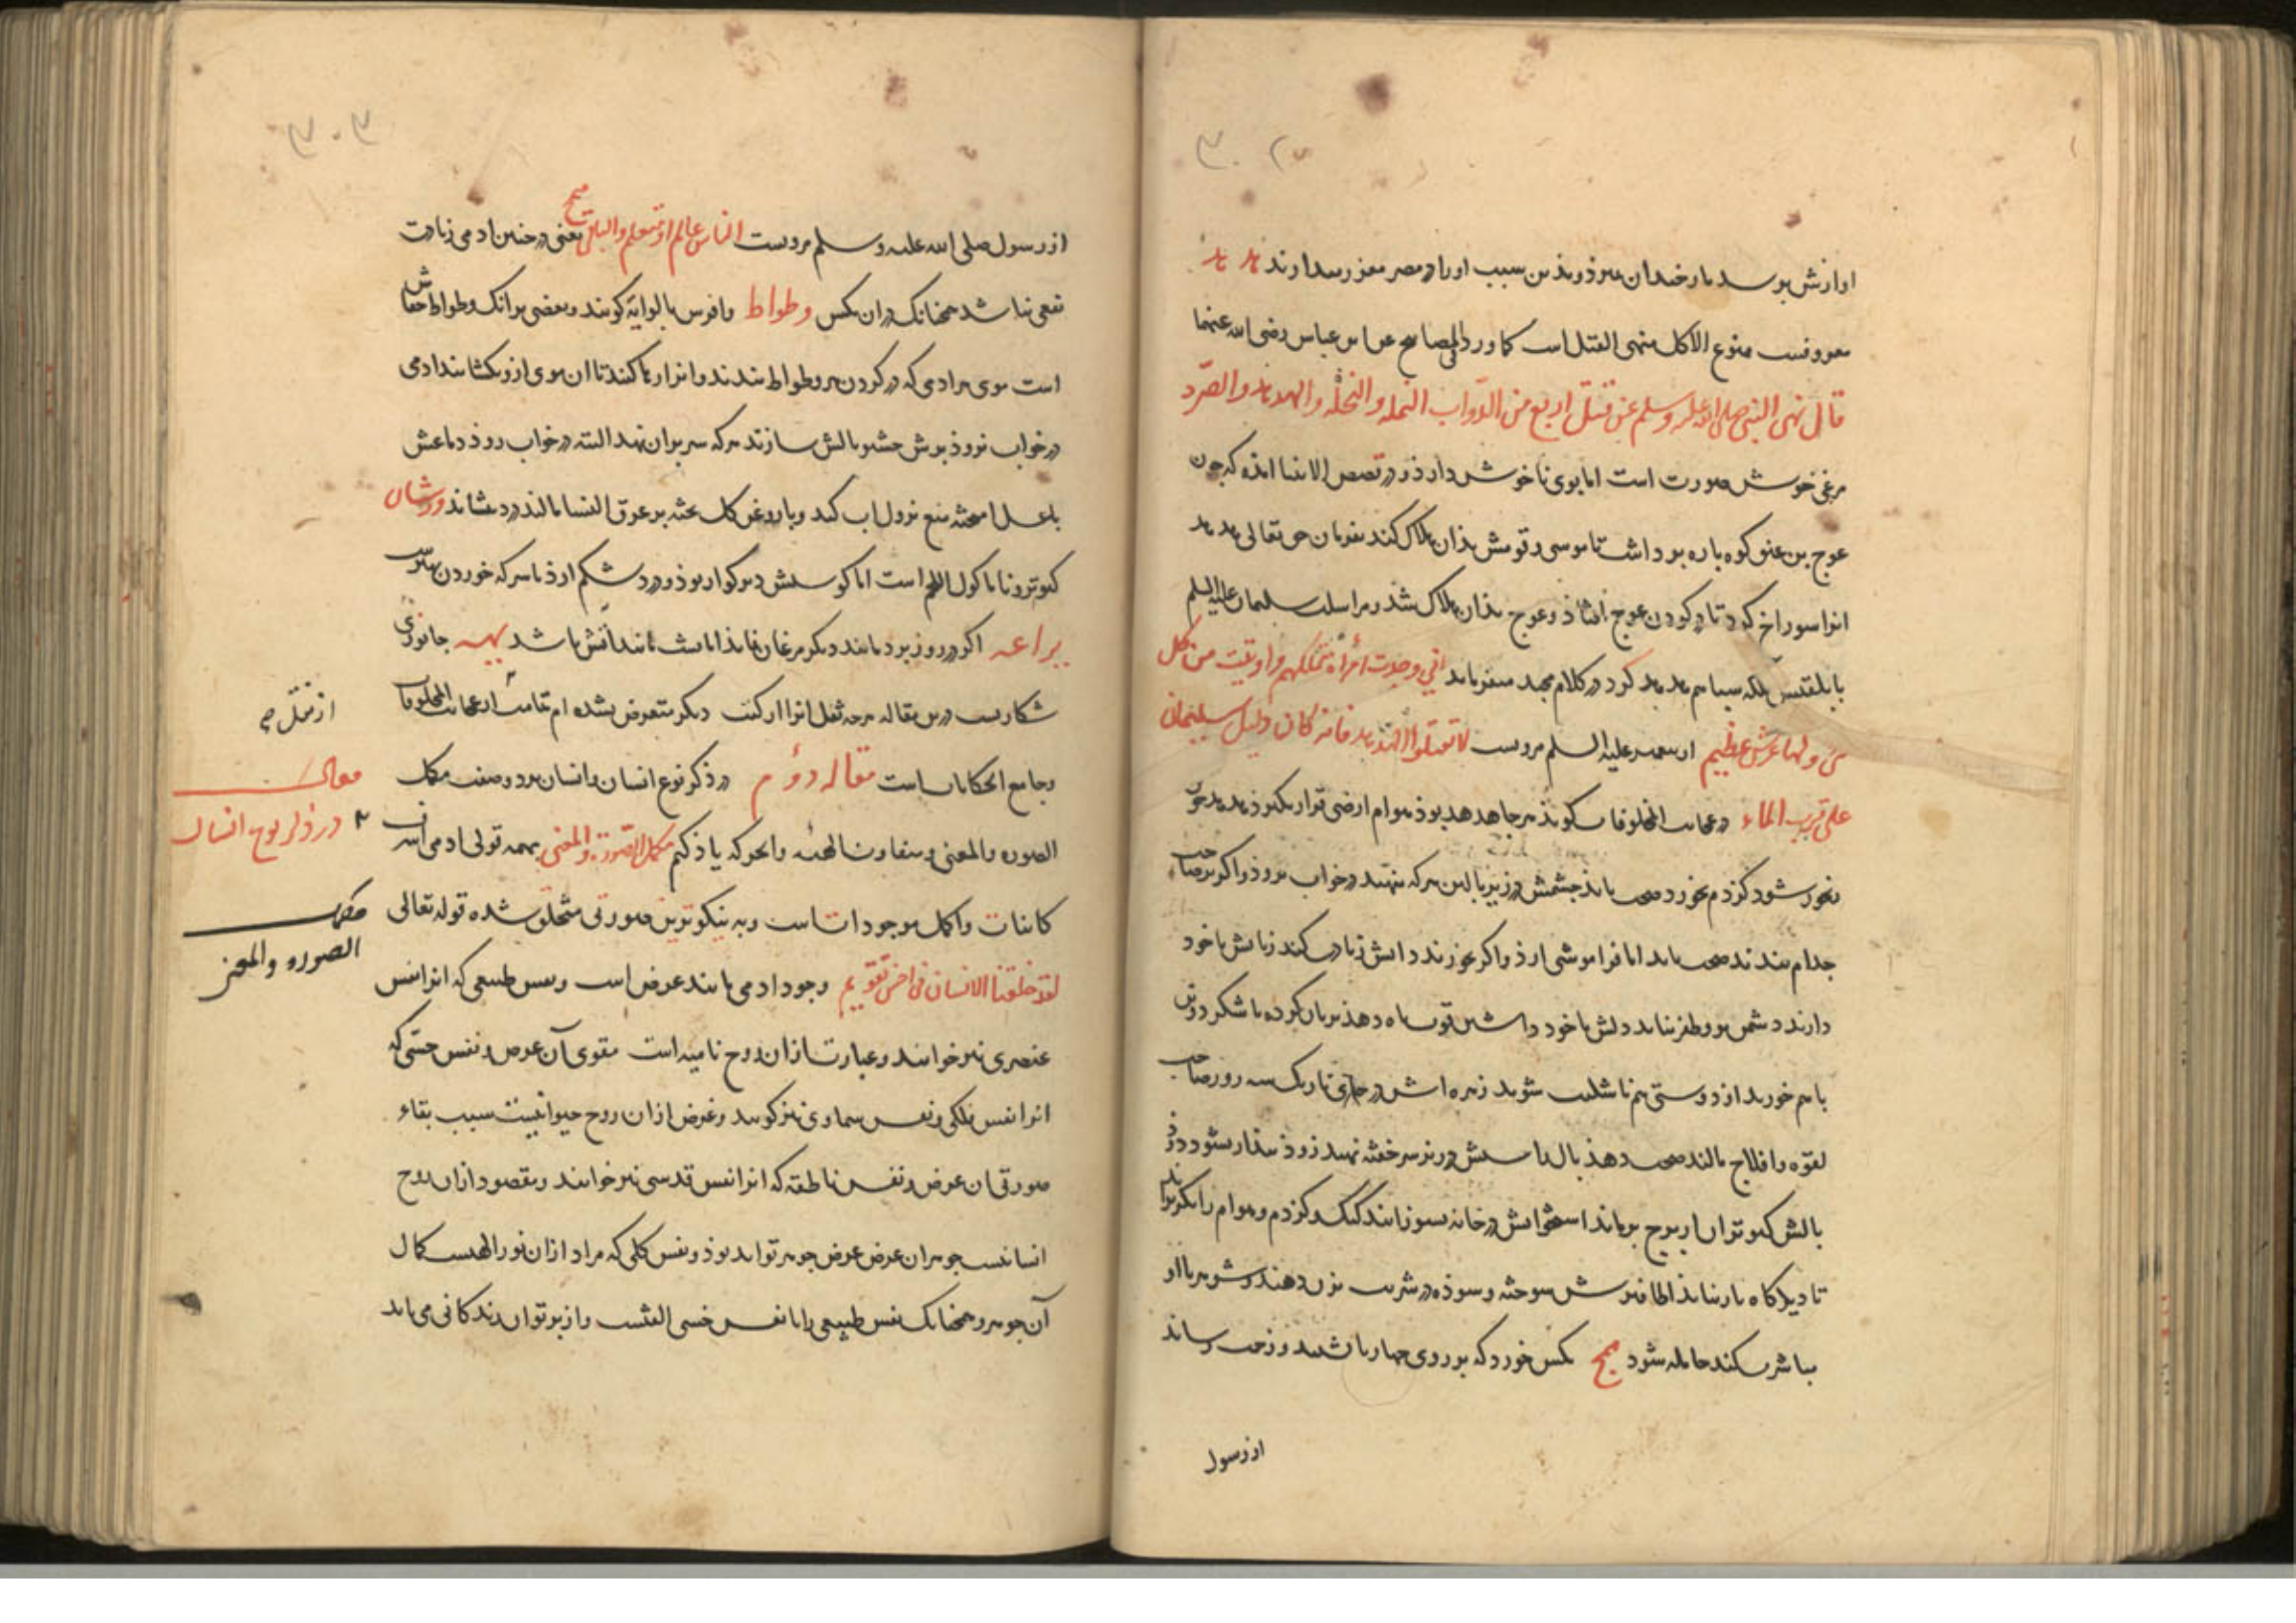 اوازش بوسد مار خندان میرد و بذین سبب او را در مصر معزز میدارند هد هد
معروفست ممنوع الاکل منهی القتل است کما ورد فی المصابیح عن ابن عباس رضی الله عنهما
قال نهی النبی صلی الله علیه وسلم عن قتل اربع من الدواب النمله والنحله والهدهد والصرد
مرغی خوش صورت است اما بوی ناخوش دارذ و در قصص الانبیا امذه که چون
عوج بن عنق کوه پاره برداشت تا موسی و قومش بذان هلاک کند بفرمان حق تعالی هدهد
انرا سوراخ کرد تا در کردن عوج افتاذ و عوج بذان هلاک شذ و مراسلت سلیمان علیه السلم
با بلقیس ملکه سبا هم هدهد کرد در کلام مجید میفرماید انی وجدت امرأة تملکهم واوتیت من کل
شی ولها عرش عظیم از پیغمبر علیه السلم مرویست لا تقتلوا الهدهد فانه کان دلیل سلیمان
علی قرب الماء در عجایب المخلوقات کوید هر جا هدهد بوذ هوام ارضی قرار نکیرذ هدهد چون
رنجور شود کزدم بخورد صحت یابد چشمش در زیر بالین هر که نهند در خواب نروذ و اکر بر صاحب
جذام بندند صحت یابد اما فراموشی ارذ و اکر بخورند دانش زیادت کند زبانش با خود
دارند دشمن برو ظفر نیابد دلش با خود داشتن قوت باه دهذ بریان کرده با شکر دو تن
با هم خورند از دوستی هم ناشکیب شوند زهره اش در جای تاریک سه روز صاحب
لقوه و افلاج مالند صحت دهذ بال راستش در زیر سر خفته نهند زوذ بیذار نشود و از
بالش کبوتران از برج برمانند استخوانش در خانه بسوزانند کیک و کزدم و هوام را بکریزاند
تا دیکر کاه باز نیایذ اظافیرش سوخته و سوذه در شربت بزن دهند و شوهر با او
مباشرت کند حامله شود همج مکس خورد که بر روی چهارپا نشیند و زحمت رساند
از رسول
از رسول صلی الله علیه وسلم مرویست الناس عالم او متعلم والباقی همج یعنی در چنین ادمی زیادت
نفعی نباشد همچنانک در ان مکس وطواط وافرس بالوایه کویند و بعضی برانک وطواط خفاش
است موی هر ادمی که در کردن هر وطواط بندند و انرا رها کنند تا ان موی ازو نکشایند ادمی
در خواب نروذ بوش حشو بالش سازند هر که سر بران نهد البته در خواب روذ دماغش
با عسل امیخته منع نزول اب کند و با روغن کل پخته بر عرق النسا مالند درد بنشاند ورشان
کبوترو نا ماکول اللحم است اما کوشتش دیرکوار بوذ و درد شکم ارذ با سرکه خوردن بهترست
یراعه اکر در روز پرد مانند دیکر مرغان نماید اما بشب مانند آتش باشد یهیه جانوری
شکاریست درین مقاله هرچه ثقل انرا ارکنت دیکر متعرض نشده ام تمامت از عجایب المخلوقات
و جامع الحکایات است مقاله دوم در ذکر نوع انسان و انسان بر دو صنف مکمل
الصوره والمعنی و متفاوت الهیئه و انجه که یاذ کنیم مکمل الصورة والمعنی بهمه قولی ادمی اشرف
کاینات و اکمل موجودات است و به نیکوترین صورتی متخلق شده قوله تعالی
لقد خلقنا الانسان فی احسن تقویم وجود ادمی مانند عرض است و نفس طبیعی که انرا نفس
عنصری نیز خوانند و عبارت از ان روح نامیه است مقوی آن عرض و نفس حسی که
انرا نفس فلکی و نفس سماوی نیز کویند و غرض از ان روح حیوانیست سبب بقاء
صورتی ان عرض و نفس ناطقه که انرا نفس قدسی نیز خوانند و مقصود از ان روح
انسانیست جوهر ان عرض عرض جوهر تواند بوذ و نفس کلی که مراد از ان نور الهیست کمال
آن جوهر و همچنانک نفس طبیعی را با نفس حسی الفتست و از پرتو ان زندکانی می یابد
مقالت
در ذکر نوع انسان
مکمل
الصوره والمعنی